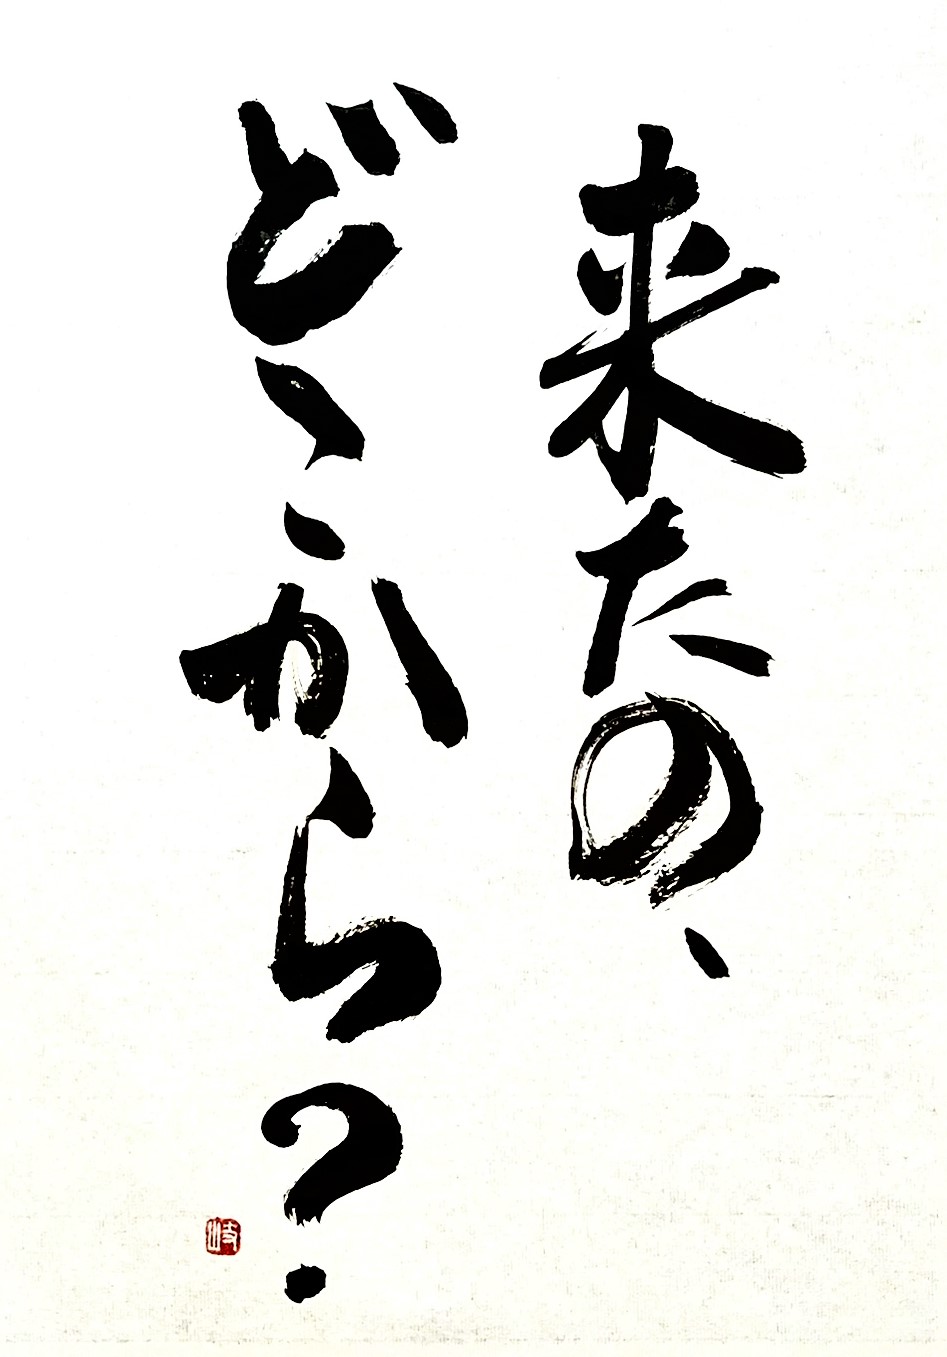 来たの、
どこから？
岐